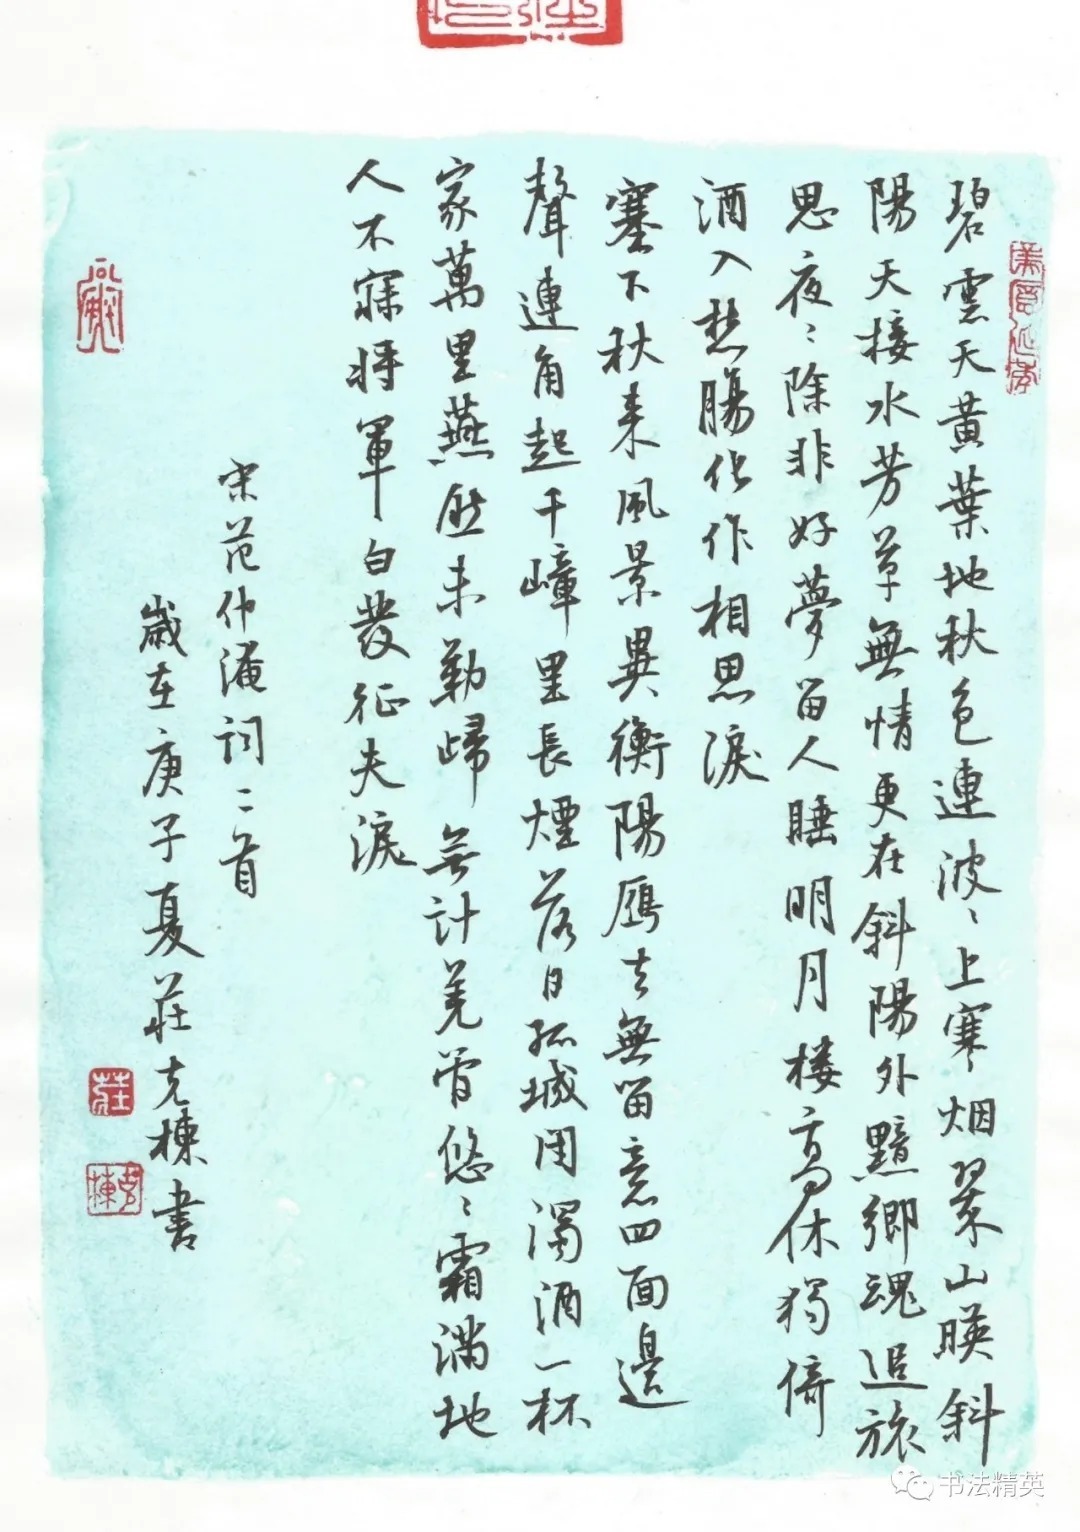 碧雲天黄葉地秋色連波〻上寒烟翠山暎斜
陽天接水芳草無情更在斜陽外黯鄉魂追旅
思夜〻除非好夢留人睡明月楼高休獨倚
酒入愁腸化作相思淚
塞下秋来風景異衡陽鴈去無留意四面邊
聲連角起千嶂里長煙落日孤城闭濁酒一杯
家萬里燕然未勒歸無計羌管悠〻霜滿地
人不寐將軍白发征夫淚
宋范仲淹词二首
歲在庚子夏莊克棟書
莊
克棟
书法精英